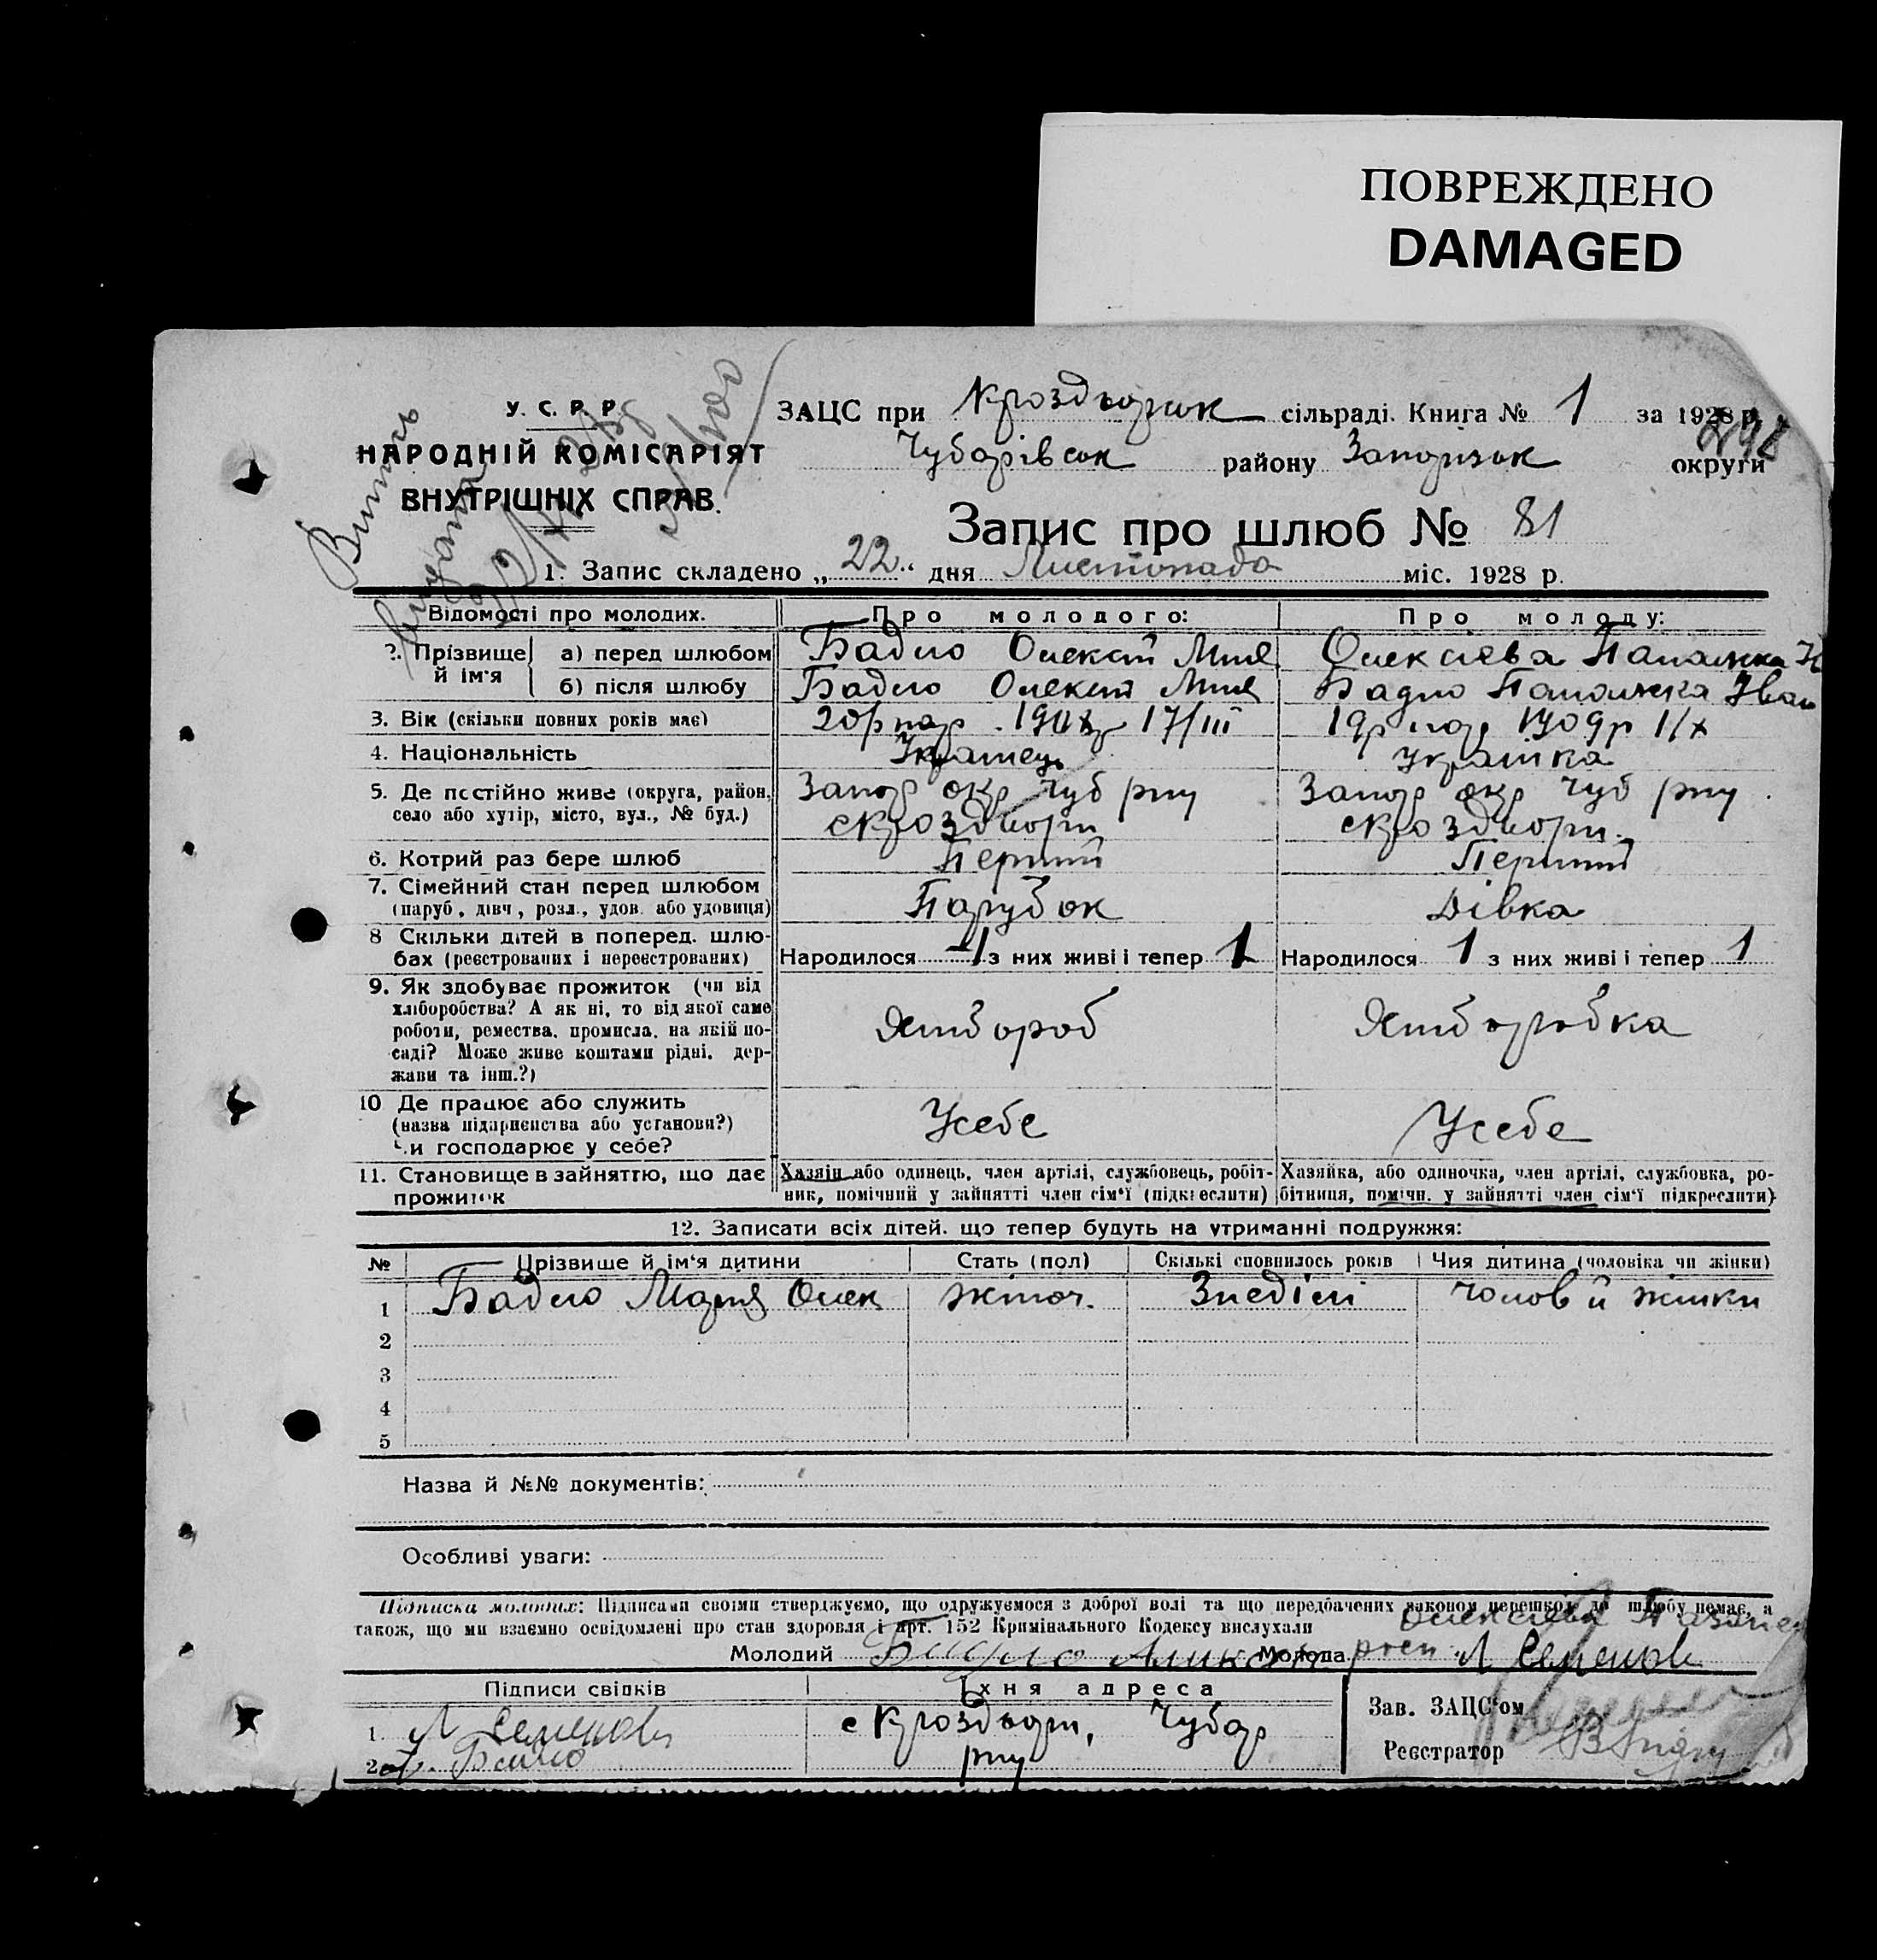 ПОВРЕЖДЕНО
DAMAGED
У. С. Р. Р.
НАРОДНІЙ КОМІСАРІЯТ
ВНУТРІШНІХ СПРАВ.
Витяг
ЗАЦС при сільраді. Книга № 1 за 1928 р.
Чубарівськ району Запоризьк округи
Запис про шлюб № 81
1. Запис складено „22“ дня Листопада міс. 1928 р.
Відомості про молодих. Про молодого: Про молоду:
2. Прізвище й ім'я а) перед шлюбом Бадло Олексій Олексієва
б) після шлюбу Бадло Олексій Бадло Іван
3. Вік (скільки повних років має) 20 р нар. 1908 р 17/III 19 р нар 1909 р 1/X
4. Національність Українець Українка
5. Де постійно живе (округа, район, Запор окр Чуб р-ну Запор окр Чуб р-ну
село або хутір, місто, вул., № буд.)
6. Котрий раз бере шлюб Перший Перший
7. Сімейний стан перед шлюбом
(паруб., дівч., розл., удов. або удовиця) Парубок Дівка
8 Скільки дітей в поперед. шлю-
бах (реєстрованих і нереєстрованих) Народилося 1 з них живі і тепер 1 Народилося 1 з них живі і тепер 1
9. Як здобуває прожиток (чи від
хліборобства? А як ні, то від якої саме
роботи, ремества, промисла, на якій по- Хлібороб Хліборобка
саді? Може живе коштами рідні, дер-
жави та інш.?)
10 Де працює або служить
(назва підприємства або установи?) Усебе Усебе
Чи господарює у себе?
11. Становище в зайняттю, що дає Хазяїн або одинець, член артілі, службовець, робіт- Хазяйка, або одиночка, член артілі, службовка, ро-
прожиток ник, помічний у зайнятті член сім'ї (підкреслити) бітниця, помічн. у зайнятті член сім'ї підкреслити)
12. Записати всіх дітей, що тепер будуть на утриманні подружжя:
№ Прізвище й ім'я дитини Стать (пол) Скількі сповнилось років Чия дитина (чоловіка чи жінки)
1 Бадло Марія Олек жіноч. 3 неділі чолов й жінки
2
3
4
5
Назва й №№ документів:
Особливі уваги:
Підписка молодих: Підписами своїми стверджуємо, що одружуємося з доброї волі та що передбачених законом перешкод до шлюбу немає, а
також, що ми взаємно освідомлені про стан здоровля і арт. 152 Кримінального Кодексу вислухали
Молодий Молода
Підписи свідків Їхня адреса
Зав. ЗАЦС'ом
1 Л Семенов Чубар
2 р-ну
Реєстратор